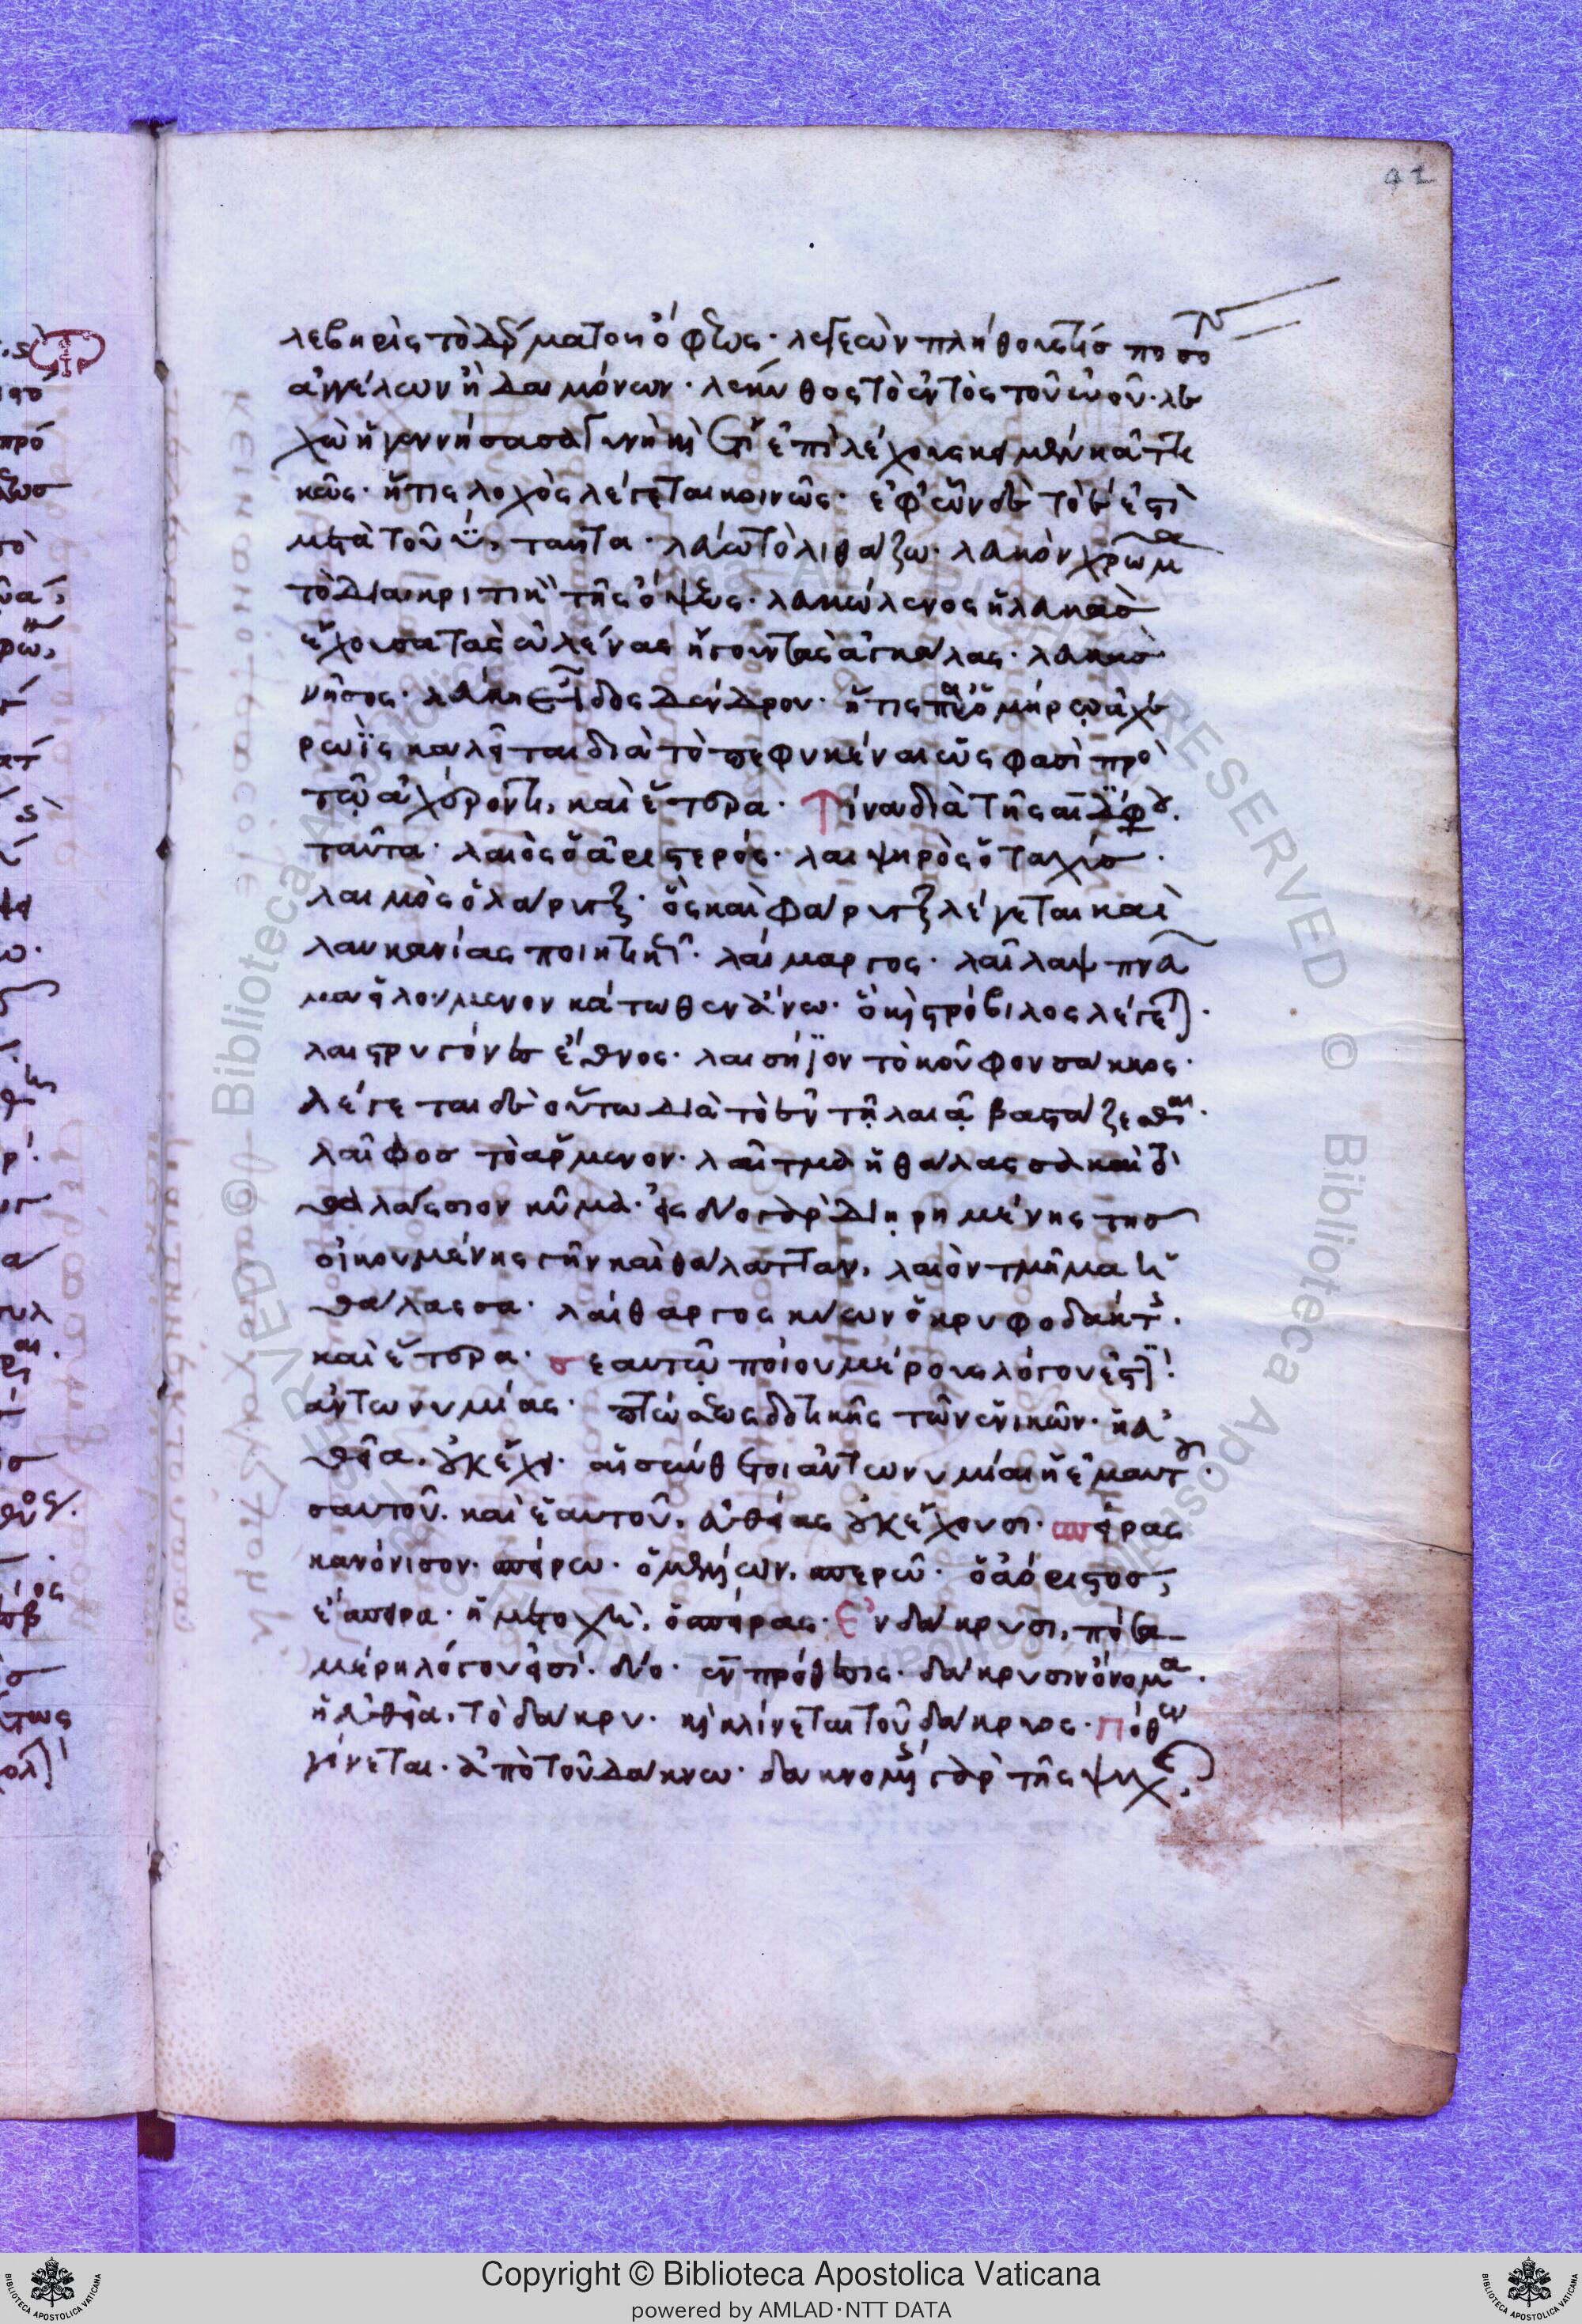 λεβηρὶς τὸ δέρμα τοῦ ὄφεως· λεγεὼν πλῆθος ποσὸ
ἀγγέλων ἢ δαιμόνων· λέκυθος τὸ ἐντὸς τοῦ ὠοῦ· λε
χὼ ἡ γεννήσασα γυνὴ καὶ ἔτι ἐπὶ λέχους κειμένη κἂν τε
κῶς· ἥτις λοχὸς λέγεται κοινῶς· ἐφ' ὧν δὲ τὸ ε ἐστὶ
μετὰ τοῦ υ, ταῦτα· λεύω τὸ λιθάζω· λευκὸν χρῶμα
τὸ διακριτικὸν τῆς ὄψεως· λευκώλενος ἡ λευκὰσ
ἔχουσα τὰς ὠλένας ἤγουν τὰς ἀγκάλας· λευκὰσ
νῆσος· λεύκη εἶδος δένδρον· ἥτις παρ' Ὁμήρῳ ἀχε
ρωῒς καλεῖται διὰ τὸ πεφυκέναι ὥς φασι πρὸ
τῷ ἀχέροντι, καὶ ἕτερα· Τίνα διὰ τῆς αι διφθ.
ταῦτα· λαιὸς ὁ ἀριστερός· λαιψηρὸς ὁ ταχύσ·
λαιμὸς ὁ λάρυγξ· ὃς καὶ φάρυγξ λέγεται καὶ
λαυκανίας ποιητικῶς· λαίμαργος· λαῖλαψ πνεῦμα
μα εἰλούμενον κάτωθεν ἄνω· ὃ καὶ στρόβιλος λέγεται·
λαιστρυγόνες ἔθνος· λαισήϊον τὸ κοῦφον σάκκος·
λέγεται δὲ οὕτω διὰ τὸ ἐν τῇ λαιᾷ βαστάζεσθαι·
λαῖφοσ τὸ ἄρμενον· λαῖτμα ἡ θάλασσα καὶ τὸ
θαλάσσιον κῦμα· εἰς δύο γὰρ διῃρημένης τησ
οἰκουμένης γῆν καὶ θάλατταν, λαιὸν τμῆμα ἡ
θάλασσα· λαίθαργος κύων ὁ κρυφοδάκτης·
καὶ ἕτερα· σεαυτῷ ποίου μέρους λόγου ἐστίν;
ἀντωνυμίας· πτώσεως δοτικῆς τῶν ἑνικῶν· ἡ εὐ
θεῖα, οὐκ ἔχει· αἱ σύνθετοι ἀντωνυμίαι ἡ ἐμαυτοῦ·
σαυτοῦ. καὶ ἑαυτοῦ, εὐθείας οὐκ ἔχουσι· πείρας
κανόνισον· πείρω· ὁ μέλλων, περῶ· ὁ ἀόριστοσ,
ἔπειρα· ἡ μετοχὴ, ὁ πείρας· Ἐν δάκρυσι, πόσα
μέρη λόγου εἰσί· δύο· ἐν πρόθεσις· δάκρυσιν ὄνομα·
ἡ εὐθεῖα, τὸ δάκρυ· καὶ κλίνεται τοῦ δάκρυος· Πόθεν
γίνεται· ἀπὸ τοῦ δάκνω· δακνομένης γὰρ τῆς ψυχῆς,
Copyright © Biblioteca Apostolica Vaticana
powered by AMLAD·NTT DATA